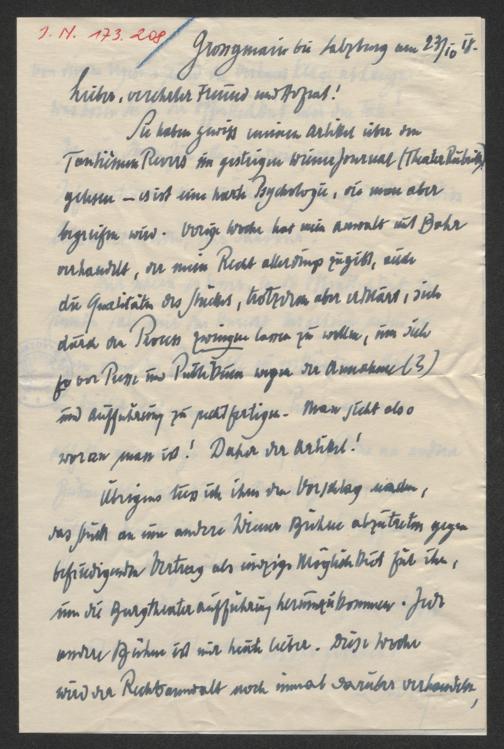 J. N. 173.208
Grossgmain bei Salzburg am 27/10 18.
Lieber, verehrter Freund und Hofrat!
Sie haben gewiss meinen Artikel über den
Tantiemen Revers im gestrigen Wiener Journal (Theater Rubrik)
gelesen – es ist eine harte Psychologie, die man aber
begreifen wird. Vorige Woche hat mein Anwalt mit Bahr
verhandelt, der mein Recht allerdings zugibt, auch
die Qualitäten des Stückes, trotzdem aber erklärt, sich
durch den Process zwingen lassen zu wollen, um sich
vor Presse und Publikum wegen der Annahme (!)
und Aufführung zu rechtfertigen. Man sieht also
woran man ist! Daher der Artikel!
Übrigens liess ich ihm den Vorschlag machen,
das Stück an eine andere Wiener Bühne abzutreten gegen
befriedigenden Vertrag als einzige Möglichkeit für ihn,
um die Burgtheateraufführung herumzukommen. Jede
andere Bühne ist mir heute lieber. Diese Woche
wird der Rechtsanwalt noch einmal darüber verhandeln,